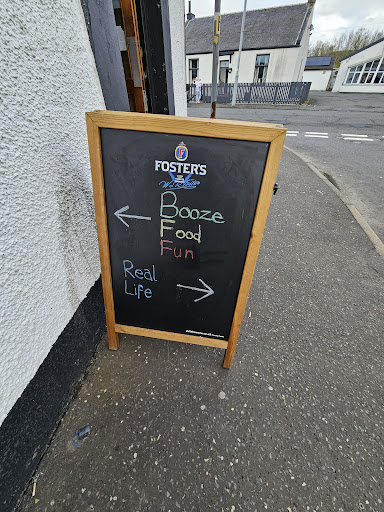 FOSTER'S
Booze
Food
Fun
Real
Life